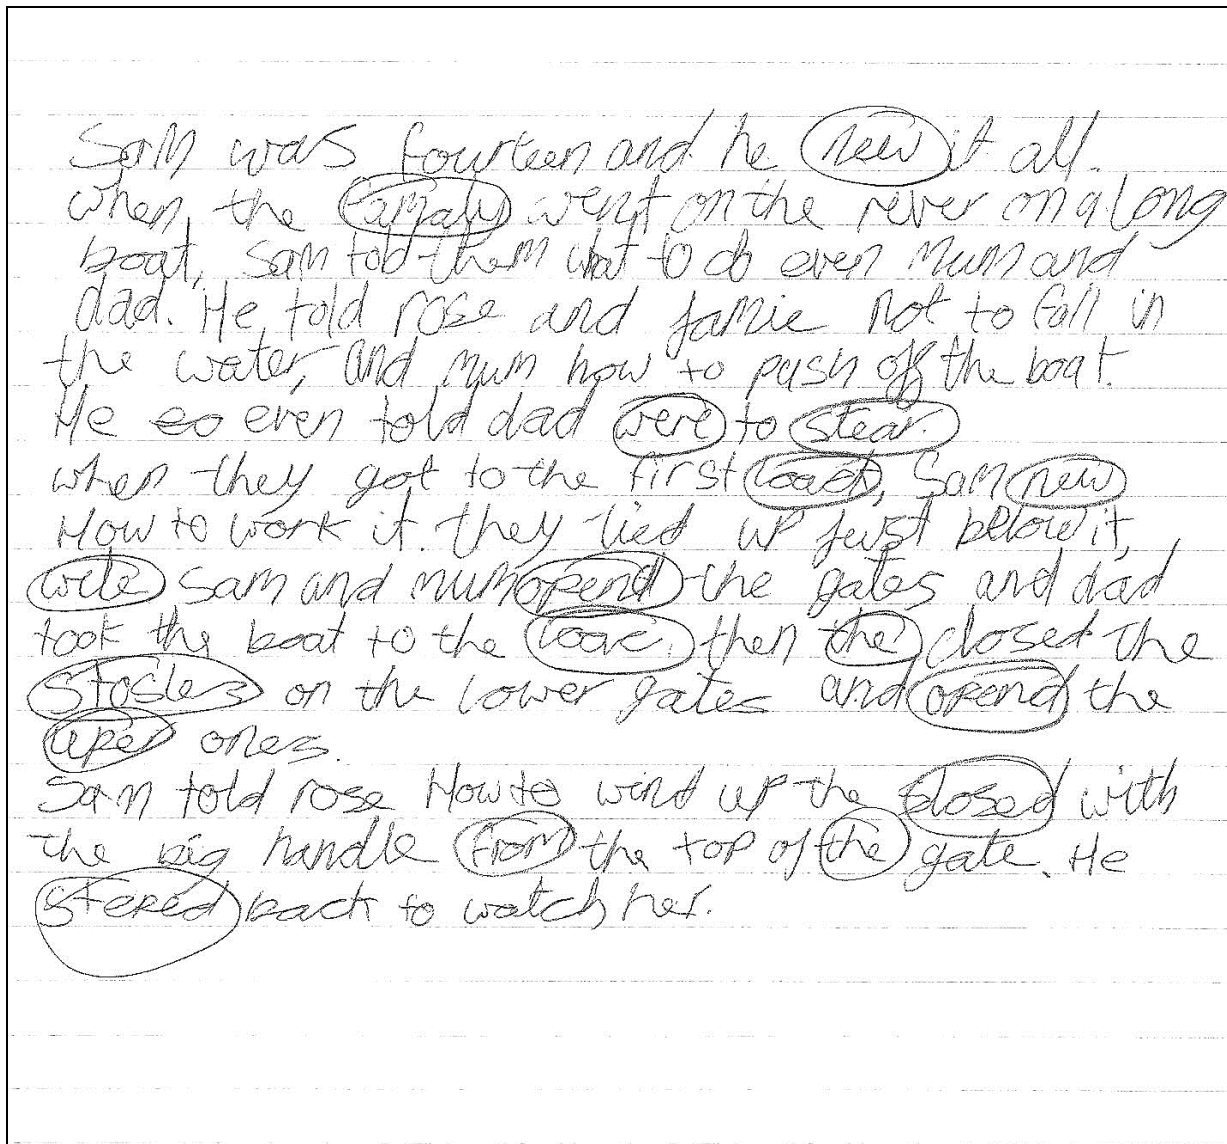 Sam was fourteen and he new it all.
when the famaly went on the river on a long
boat, Sam told them what to do even Mum and
dad. He told rose and Jamie not to fall in
the water, and mum how to push off the boat.
He eo even told dad were to stear.
when they got to the first loack, Sam new
How to work it. they tied up just below it,
wile Sam and mum opend the gates and dad
took the boat to the loack, then the closed the
on the lower gates and opend the
uper ones.
Sam told rose How to wind up the slosed with
the big handle from the top of the gate. He
steped back to watch her.